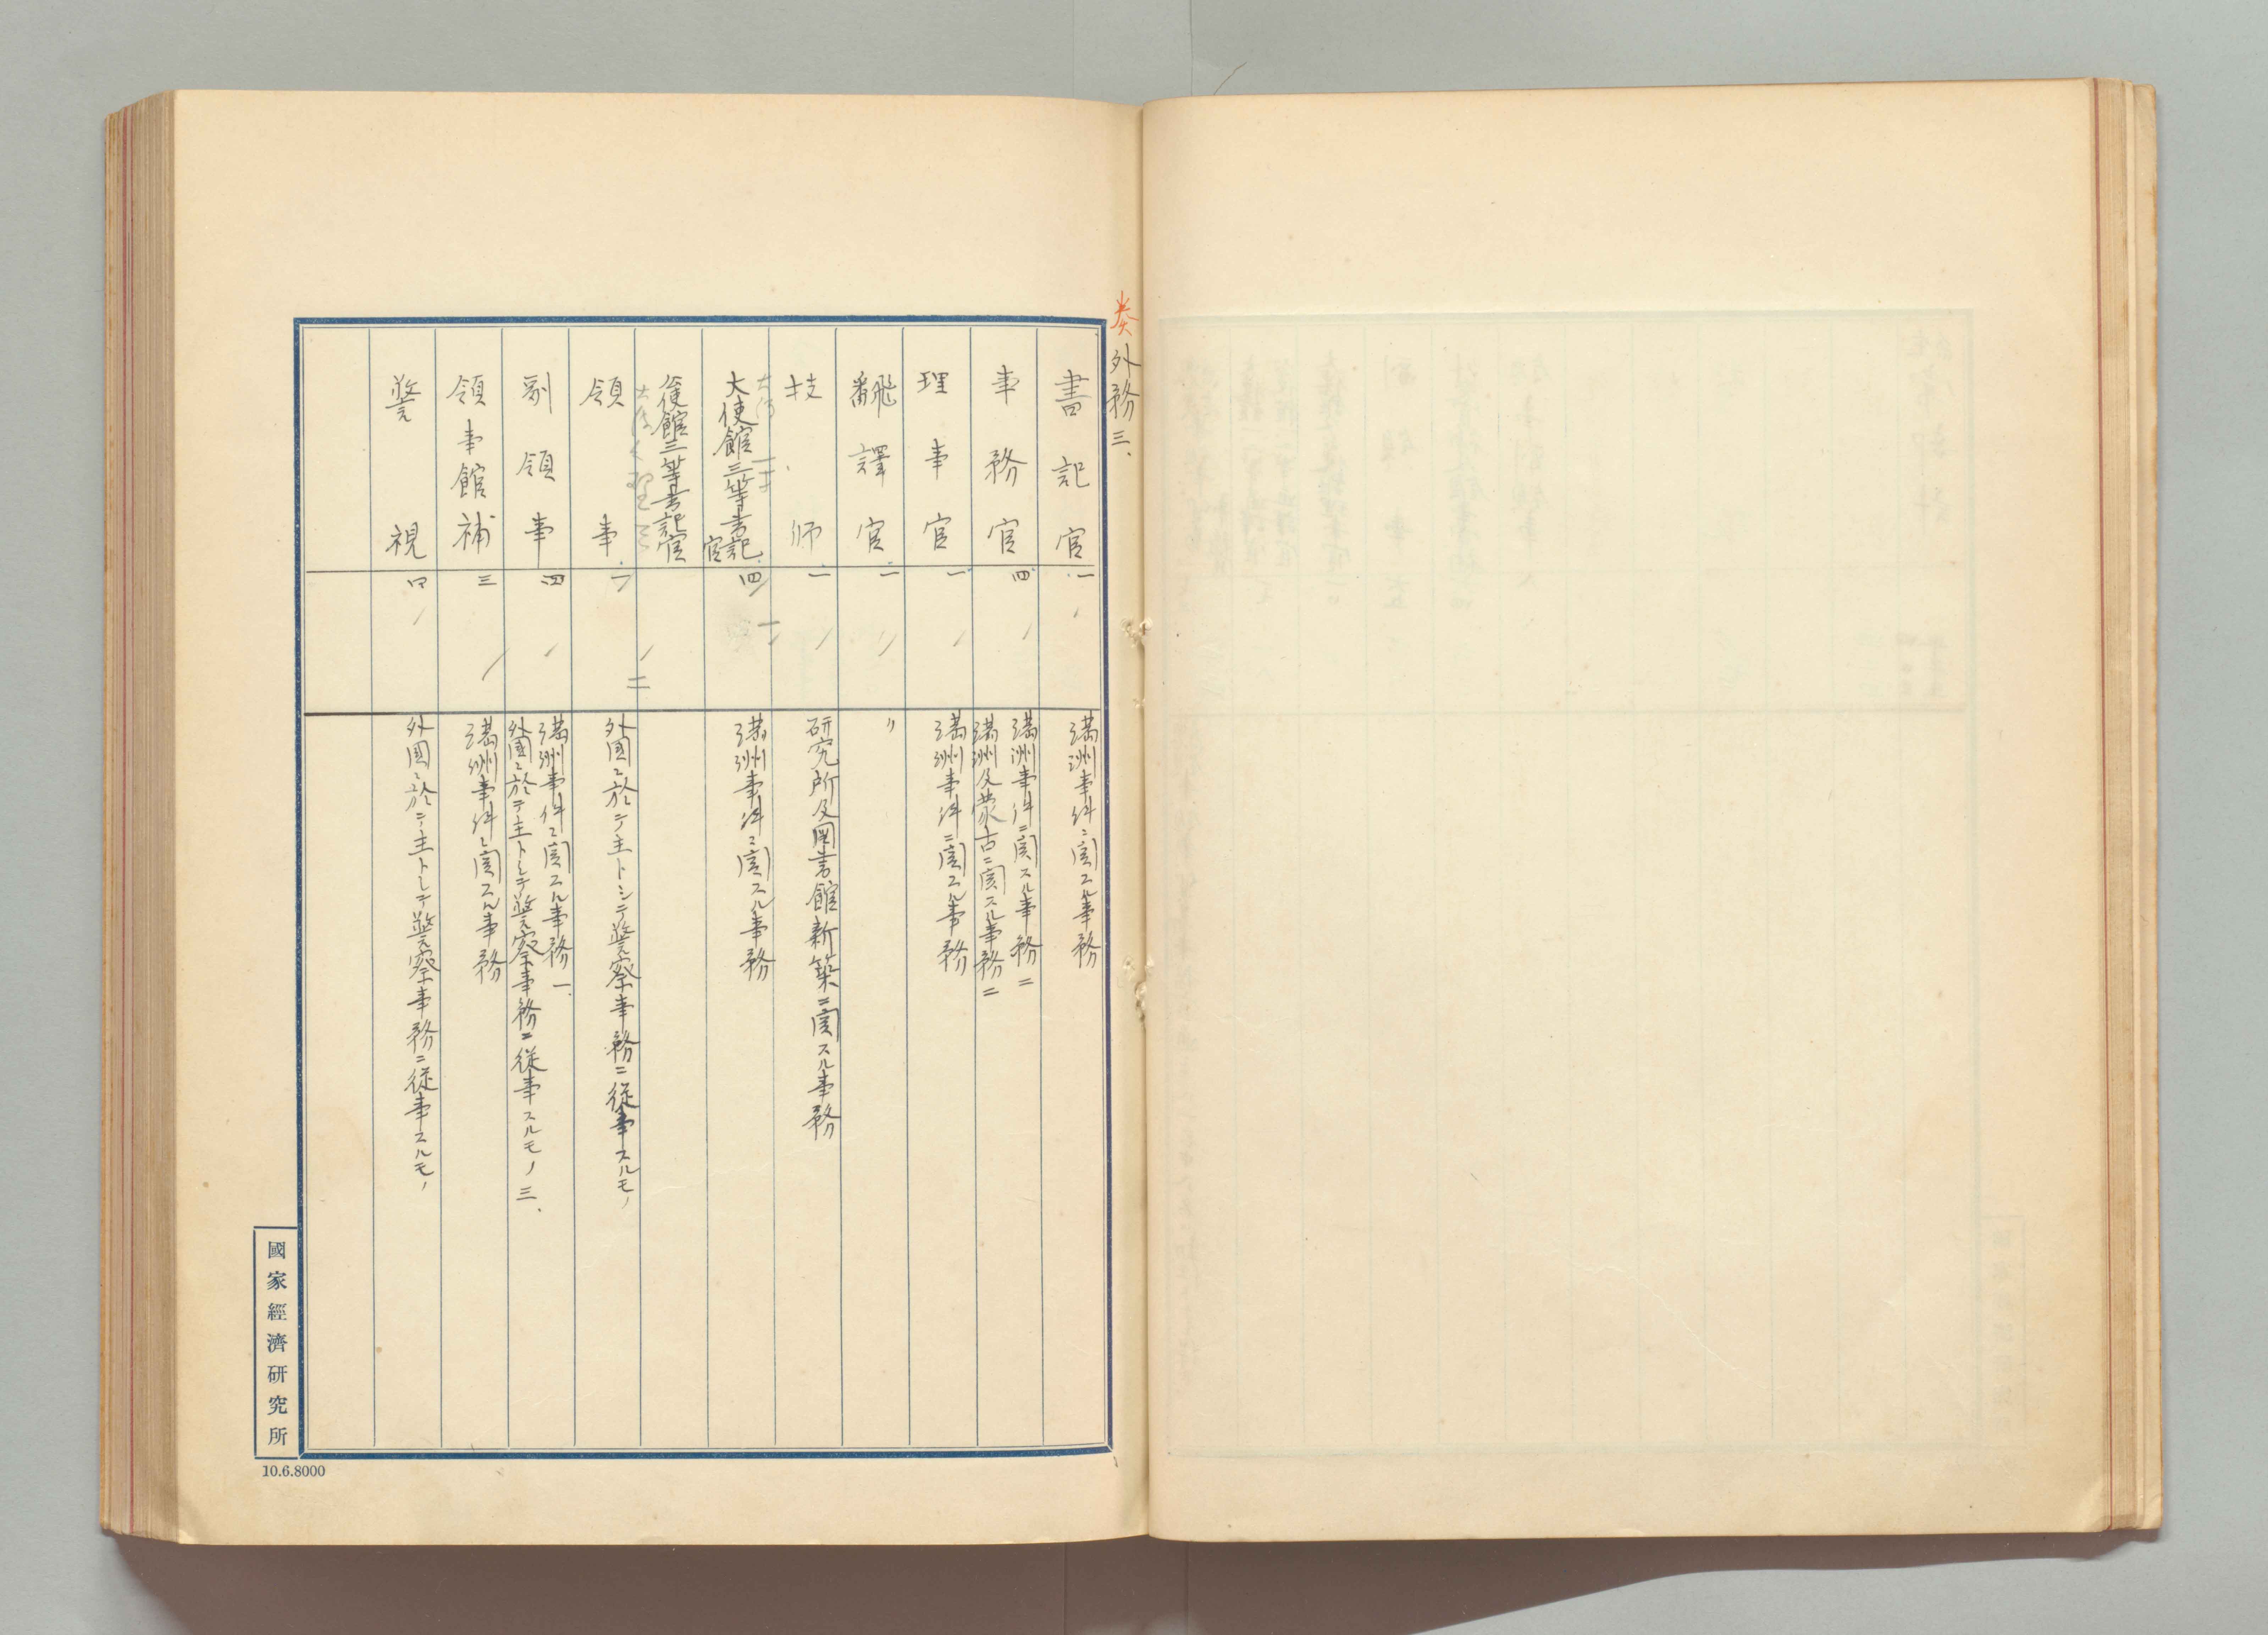 奏
外務三、
書記官
一
満洲事件ニ関スル事務
事務官
四
満洲事件ニ関スル事務二
満洲及蒙古ニ関スル事務二
理事官
一
満洲事件ニ関スル事務
飜譯官
一
〃
技師
一
研究所及図書館新築ニ関スル事務
大使館三等書記官
四
一
満洲事件ニ関スル事務
使館三等書記官
二
領事
外国ニ於テ主トシテ警察事務ニ従事スルモノ
副領事
四
満洲事件ニ関スル事務一
外国ニ於テ主トシテ警察事務ニ従事スルモノ三、
領事館補
三
満洲事件ニ関スル事務
警視
四
外国ニ於テ主トシテ警察事務ニ従事スルモノ
國家經濟研究所
10.6.8000